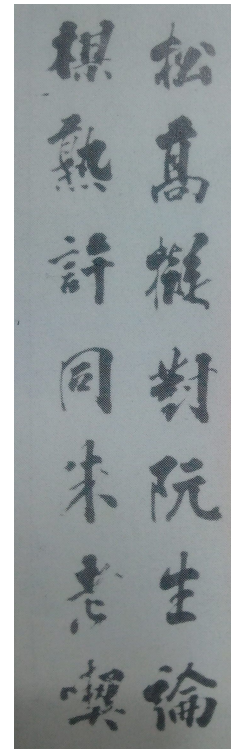 松高擬對阮生論
棋熟許同朱老喫